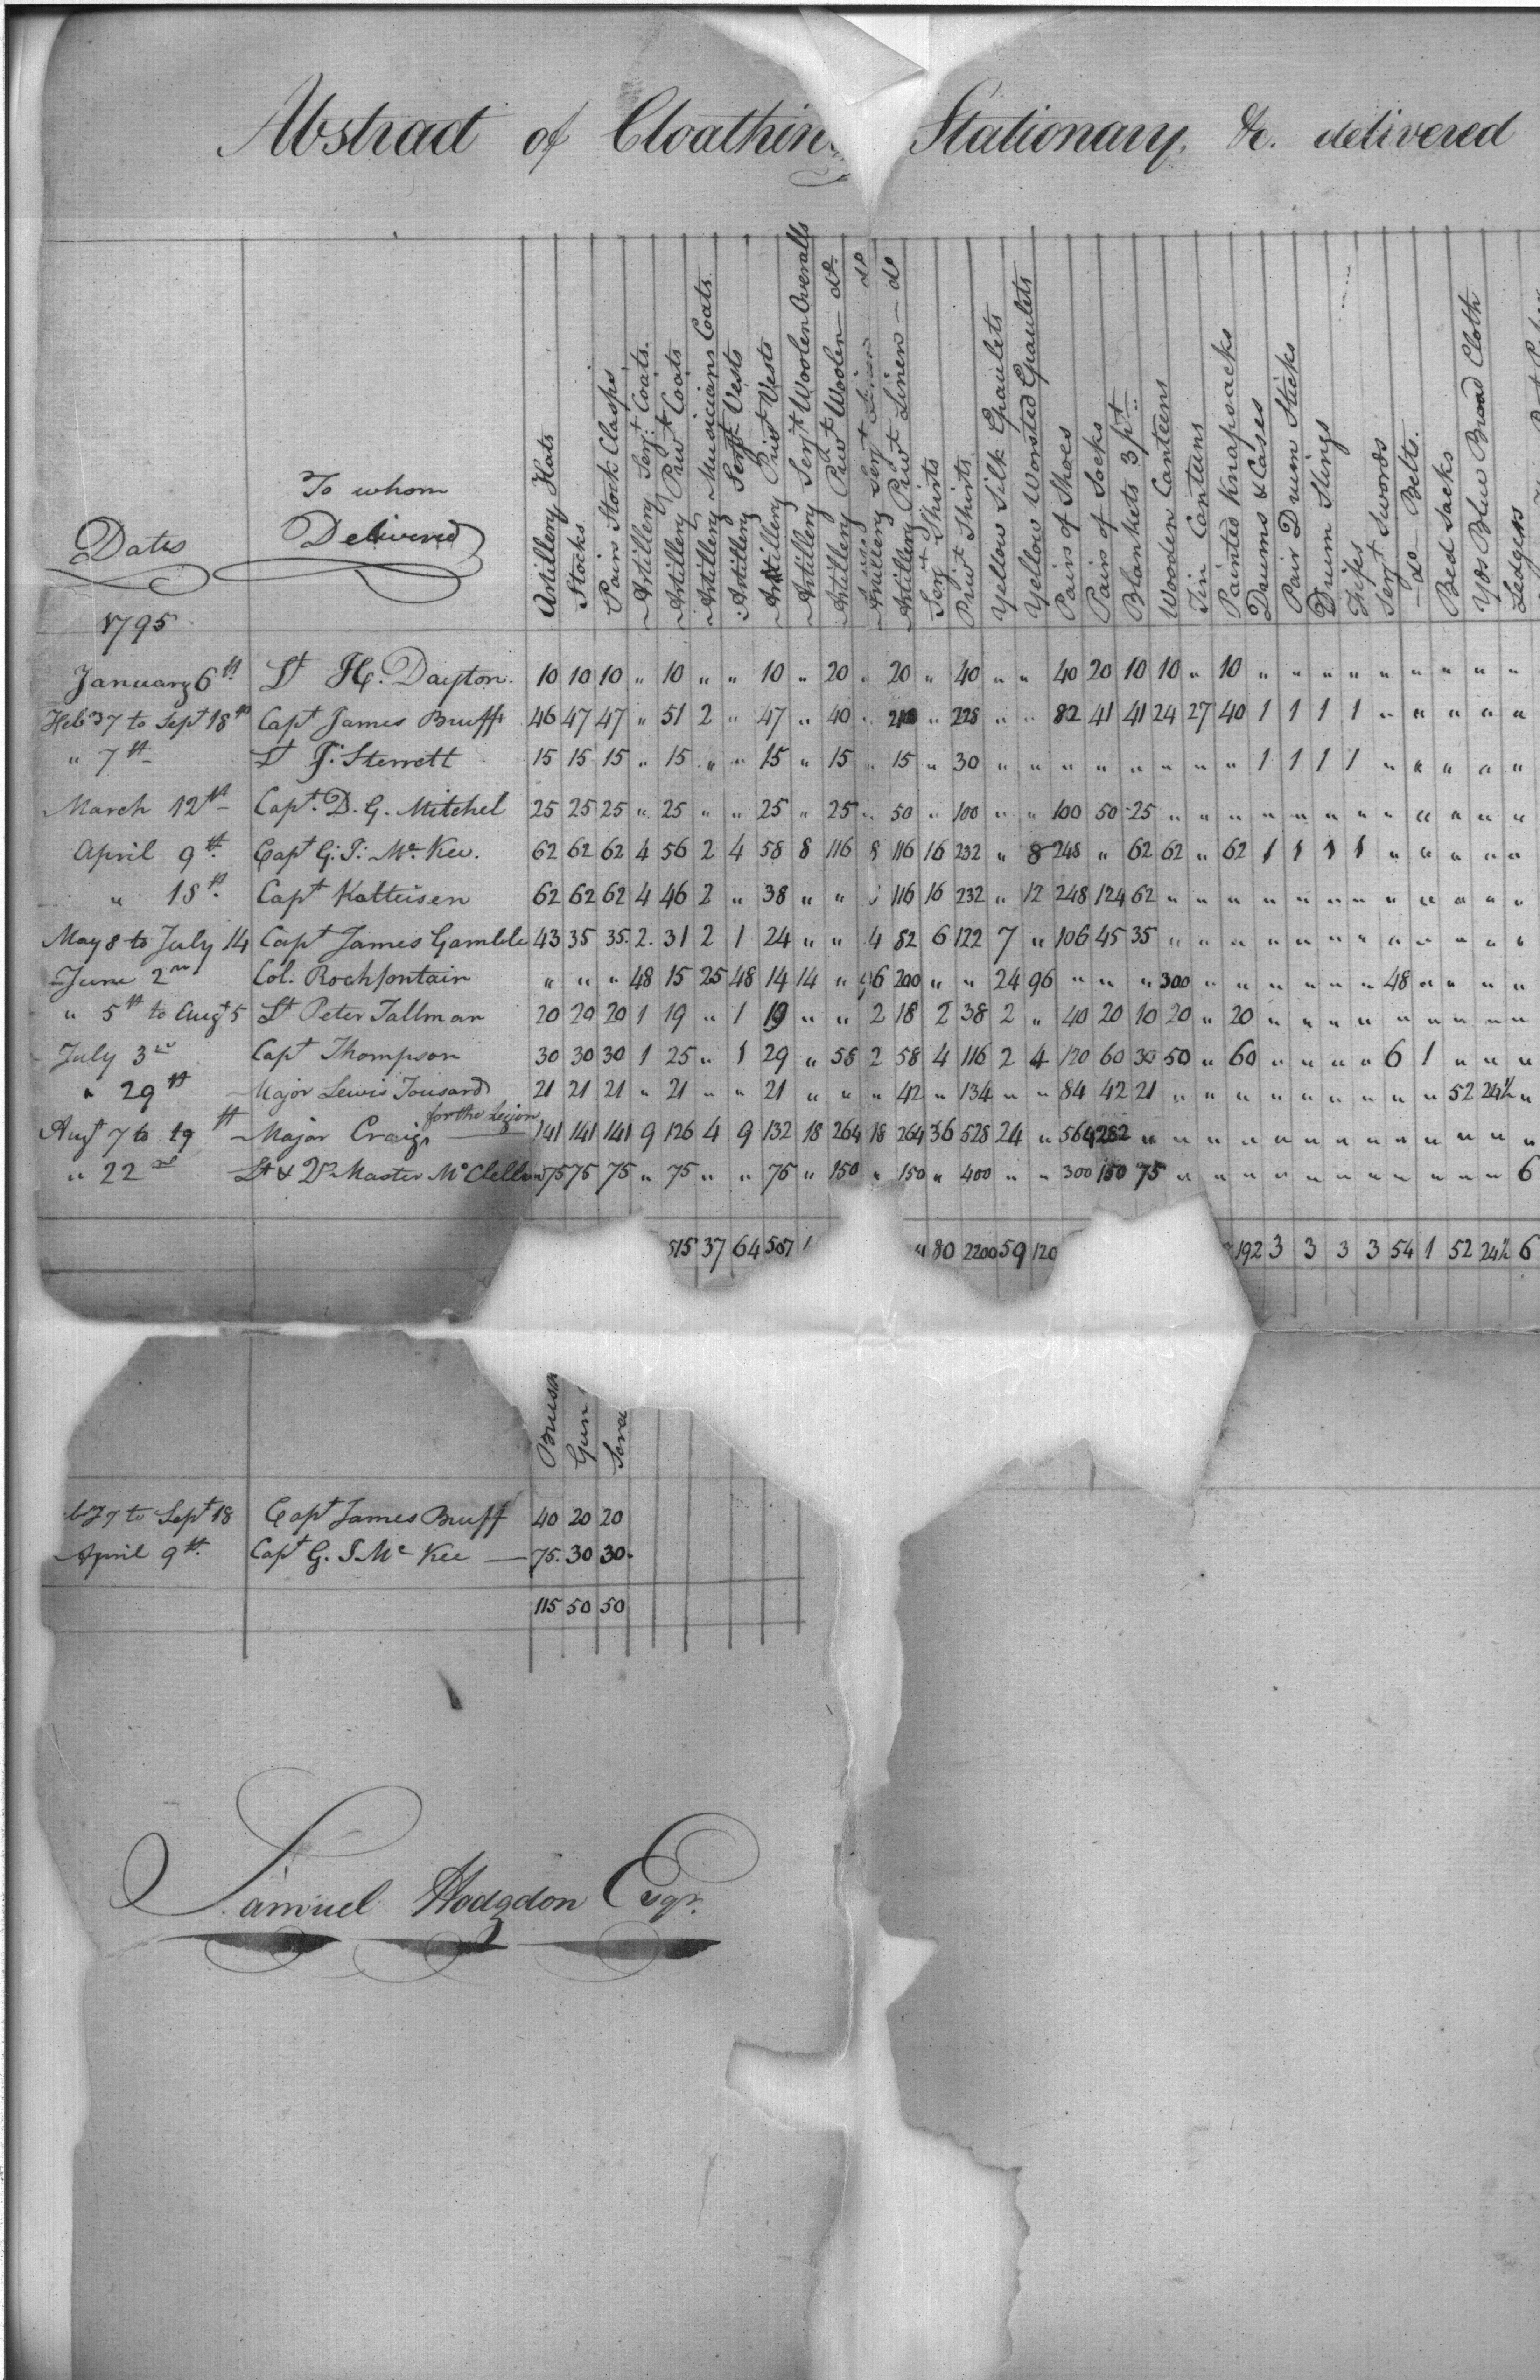 Abstract of Cloathing Stationary, &c. delivered
Dates
To whom
Delivered
Artillery Hats
Stocks
Pairs Stock Clasps
Artillery Serjt Coats
Artillery Privt Coats
Artillery Musicians Coats
Artillery Serjt Vests
Artillery Privt Vests
Artillery Serjt Woolen Overalls
Artillery Privt Woolen do
Artillery Serjt Linen do
Artillery Privt Linen do
Serjt Shirts
Privt Shirts
Yellow Silk Epaulets
Yellow Worsted Epaulets
Pairs of Shoes
Pairs of Socks
Blankets 3 pt
Wooden Canteens
Tin Canteens
Painted Knapsacks
Drums & Cases
Pair Drum Sticks
Drum Slings
Fifes
Serjt Swords
do Belts
Bed Sacks
Yds Blue Broad Cloth
Ledgers
1795
January 6th Lt H. Dayton. 10 10 10 " 10 " " 10 " 20 " 20 " 40 " " 40 20 10 10 " 10 " " " " " " " " "
Feby 7 to Sept 18th Capt James Bruff 46 47 47 " 51 2 " 47 " 40 " " 228 " " 82 41 41 24 27 40 1 1 1 1 " " " " "
" 7th Lt J. Sterrett 15 15 15 " 15 " " 15 " 15 " 15 " 30 " " " " " " " " 1 1 1 1 " " " " "
March 12th Capt. D. G. Mitchel 25 25 25 " 25 " " 25 " 25 " 50 " 100 " " 100 50 25 " " " " " " " " " " " "
April 9th Capt G. J. Mc Kee. 62 62 62 4 56 2 4 58 8 116 8 116 16 232 " 8 248 " 62 62 " 62 1 1 1 1 " " " " "
" 18th Capt Katteisen 62 62 62 4 46 2 " 38 " " 116 16 232 " 12 248 124 62 " " " " " " " " " " " "
May 8 to July 14 Capt James Gamble 43 35 35. 2. 31 2 1 24 " " 4 82 6 122 7 " 106 45 35 " " " " " " " " " " " "
June 2nd Col. Rochfontain " " " 48 15 25 48 14 14 " 96 200 " " 24 96 " " " 300 " " " " " " 48 " " " "
" 5th to Augt 5 Lt Peter Tallman 20 20 20 1 19 " 1 19 " " 2 18 2 38 2 " 40 20 10 20 " 20 " " " " " " " " "
July 3rd Capt Thompson 30 30 30 1 25 " 1 29 " 58 2 58 4 116 2 4 120 60 30 50 " 60 " " " " 6 1 " " "
" 29th Major Lewis Tousard 21 21 21 " 21 " " 21 " " " 42 " 134 " " 84 42 21 " " " " " " " " " 52 24½ "
Augt 7 to 19th Major Craig for the Legion 141 141 141 9 126 4 9 132 18 264 18 264 36 528 24 " 564 282 " " " " " " " " " " " " "
" 22nd Lt & Pr Master McClellan 75 75 75 " 75 " " 75 " 150 " 150 " 400 " " 300 150 75 " " " " " " " " " " " 6
515 37 64 587 80 2200 59 120 192 3 3 3 3 54 1 52 24½ 6
Gun
7 to Sept 18 Capt James Bruff 40 20 20
April 9th. Capt G. J. Mc Kee — 75. 30 30.
115 50 50
Samuel Hodgdon Esqr.